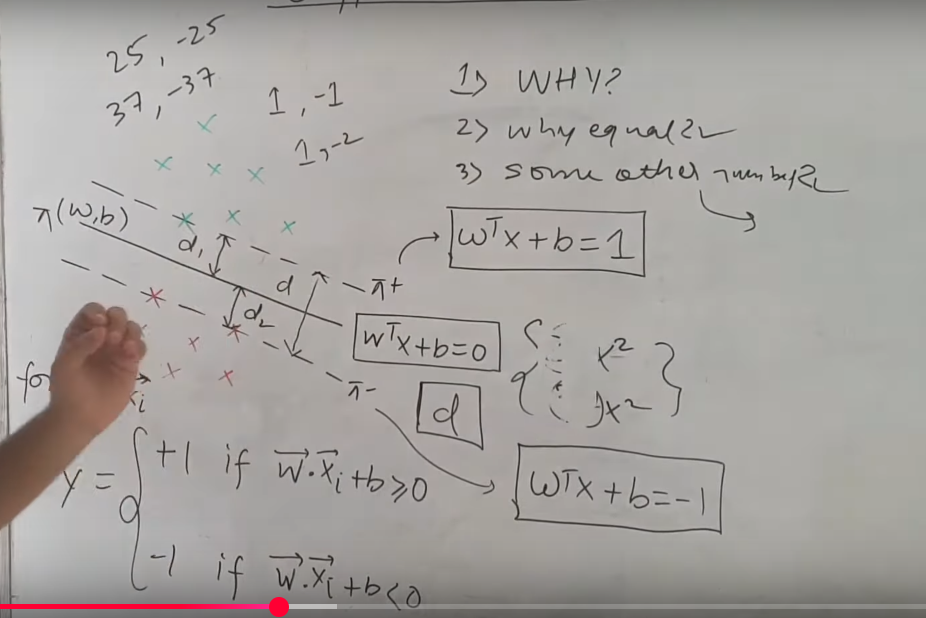 25, -25
37, -37
1, -1
1, -2
1) WHY?
2) why equal?
3) some other number?
π(w,b)
d₁
d
d₂
π+
wᵀx+b=1
wᵀx+b=0
π-
d
x²
x²
wᵀx+b=-1
xᵢ
y = { +1 if w⃗.x⃗ᵢ+b≥0
-1 if w⃗.x⃗ᵢ+b<0